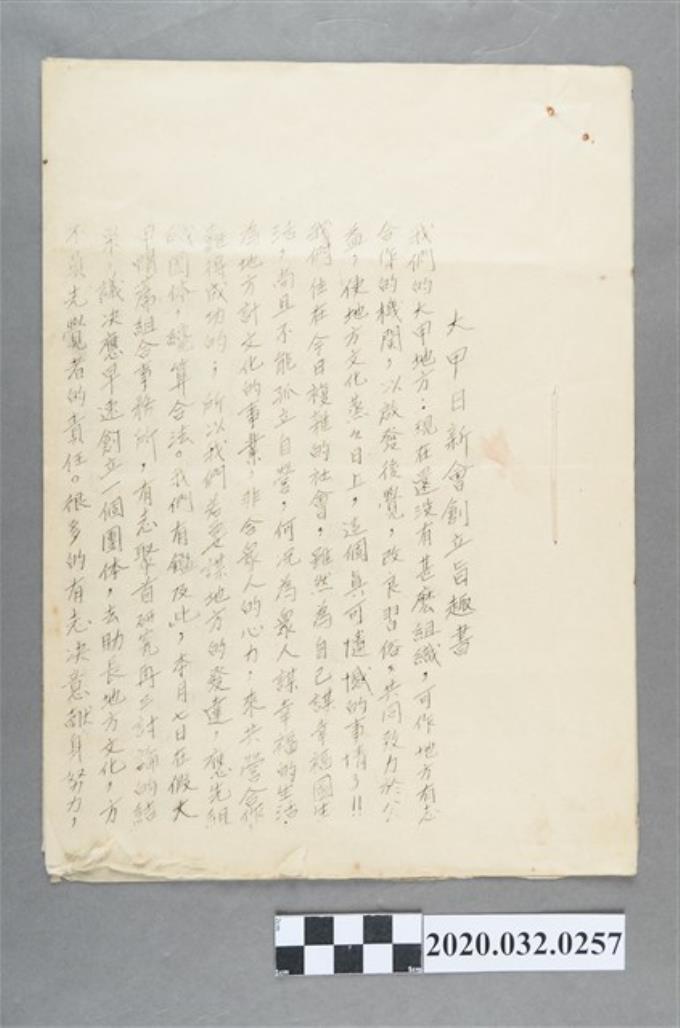 大甲日新會創立旨趣書
我們的大甲地方:現在還沒有甚麼組織,可作地方有志
合作的機関,以啟發後覺,改良習俗,共同致力於公
益,使地方文化蒸々日上,這個真可憾的事情了!!
我們住在今日複雜的社會,雖然為自己謀幸福圖生
活,尚且不能孤立自營,何况為衆人謀幸福的生活,
為地方計文化的事業,非合衆人的心力,來共營合作,
難得成功的;所以我們若要謀地方的發達,應先組
的團体,總算合法。我們有鑑及此,本月七日在假大
甲帽蓆組合事務所,有志聚首研究再三討論的結
果,議决應早速創立一個團体,去助長地方文化,方
不負先覺者的責任。很多的有志决意献身努力,
2020.032.0257